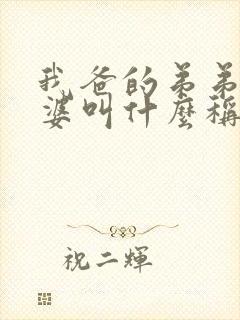 我爸的弟弟
婆叫什麼稱
祝二輝